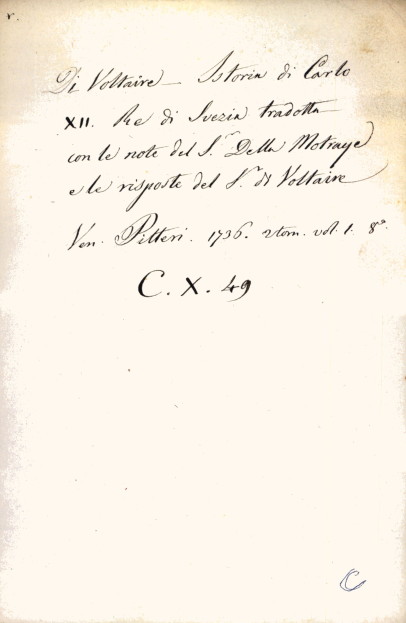 v.
Di Voltaire — Istoria di Carlo
XII. Re di Svezia tradotta
con le note del S.r Della Motraye
e le risposte del S.r di Voltaire
Ven. Pitteri. 1736. 2 tom. vol. 1. 8°.
C. X. 49
C